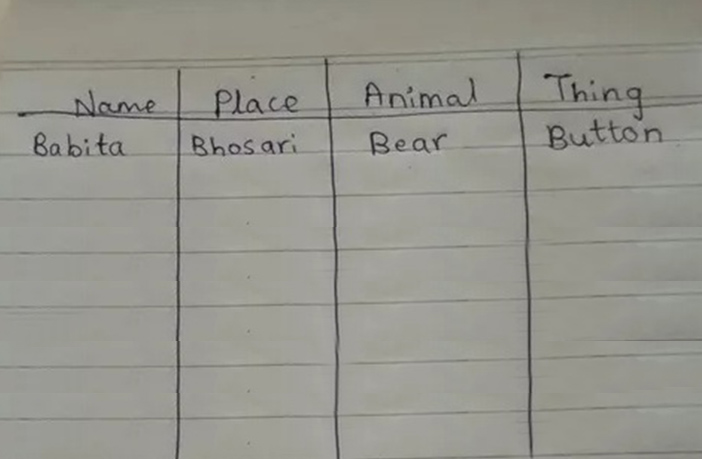 Name Place Animal Thing
Babita Bhosari Bear Button